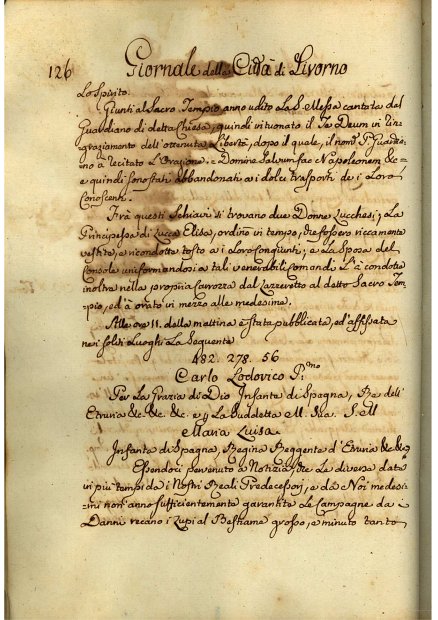 126 Giornale della Città di Livorno
Lo Spirito.
Giunti al Sacro Tempio anno udito La S. Messa cantata dal
Guardiano di detta Chiesa, quindi intuonato il Te Deum in rin=
graziamento dell'ottenuta Libertà, dopo il quale, il nom.º P. Guardia=
no a recitato L'Orazione = Domine Salvum fac Napoleonem &c =
e quindi sono stati abbandonati a i dolci trasporti de i Loro
Conoscenti.
Frà questi Schiavi si trovano due Donne Lucchesi; La
Principessa di Lucca Elisa, ordinò in tempo, che fossero riccamente
vestite, e ricondotte tosto a i Loro Congiunti; e La Sposa del
Console uniformandosi a tali venerabili comandi L'à condotte
inoltre nella propria Carrozza dal Lazzeretto al detto Sacro Tem=
pio, ed à orato in mezzo alle medesime.
Alle ore 11. della mattina è stata pubblicata, ed affissata
ne i soliti Luoghi La Seguente
182. 278. 56
Carlo Lodovico P.mo
Per La Grazia di Dio Infante di Spagna, Re dell'
Etruria &c. &c. &c. e La Suddetta M. Sua S. M
Maria Luisa.
Infanta di Spagna, Regina Reggente d'Etruria &c &c &c
Essendoci pervenuto a Notizia, che Le diverse date
in più tempi da i Nostri Reali Predecessori, e da Noi medesi=
mi non anno sufficientemente garantite Le Campagne da i
Danni recano i Lupi al Bestiame grosso, e minuto tanto